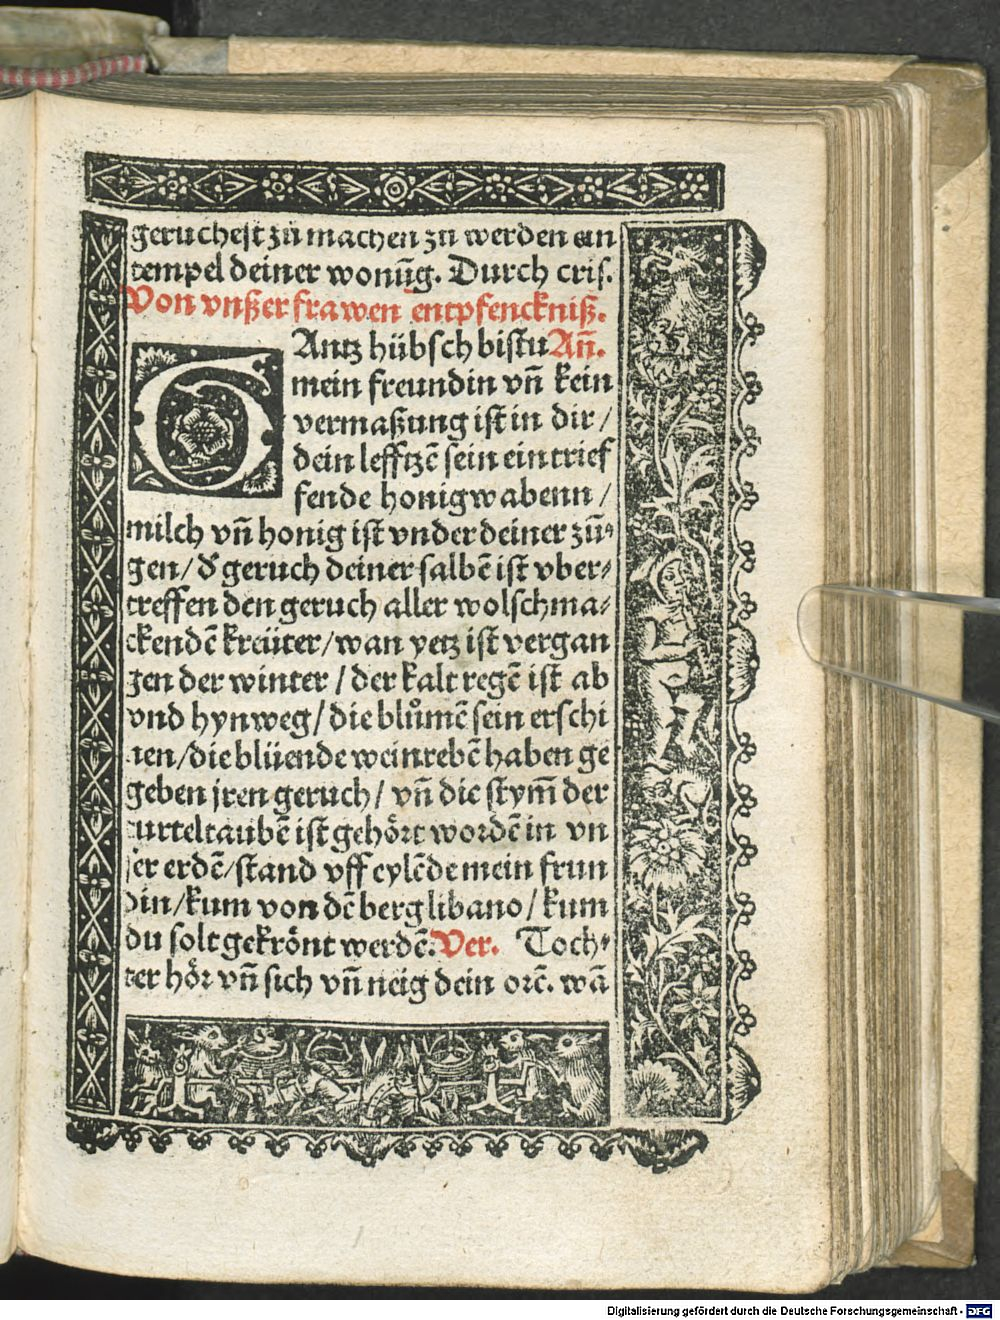 gerucheſt zů machen zu werden ein
tempel deiner wonūg. Durch criſ.
Von vnßer frawen entpfenckniß.
GAntz hübſch biſtu Añ.
mein freundin vñ kein
vermaßung iſt in dir /
dein lefftzē ſein ein trief
fende honigwabenn /
milch vñ honig iſt vnder deiner zū⸗
gen / d' geruch deiner ſalbē iſt vber⸗
treffen den geruch aller wolſchma⸗
ckendē kreüter / wan yetz iſt vergan
gen der winter / der kalt regē iſt ab
vnd hynweg / die blůmē ſein erſchi
nen / die blüende weinrebē haben ge
geben jren geruch / vñ die ſtym̄ der
turteltaubē iſt gehört wordē in vn
ſer erdē / ſtand vff eylēde mein frun
din / kum von dē berg libano / kum
du ſolt gekrönt werdē. Ver. Toch⸗
ter hör vñ ſich vñ neig dein orē. wā
Digitalisierung gefördert durch die Deutsche Forschungsgemeinschaft - DFG